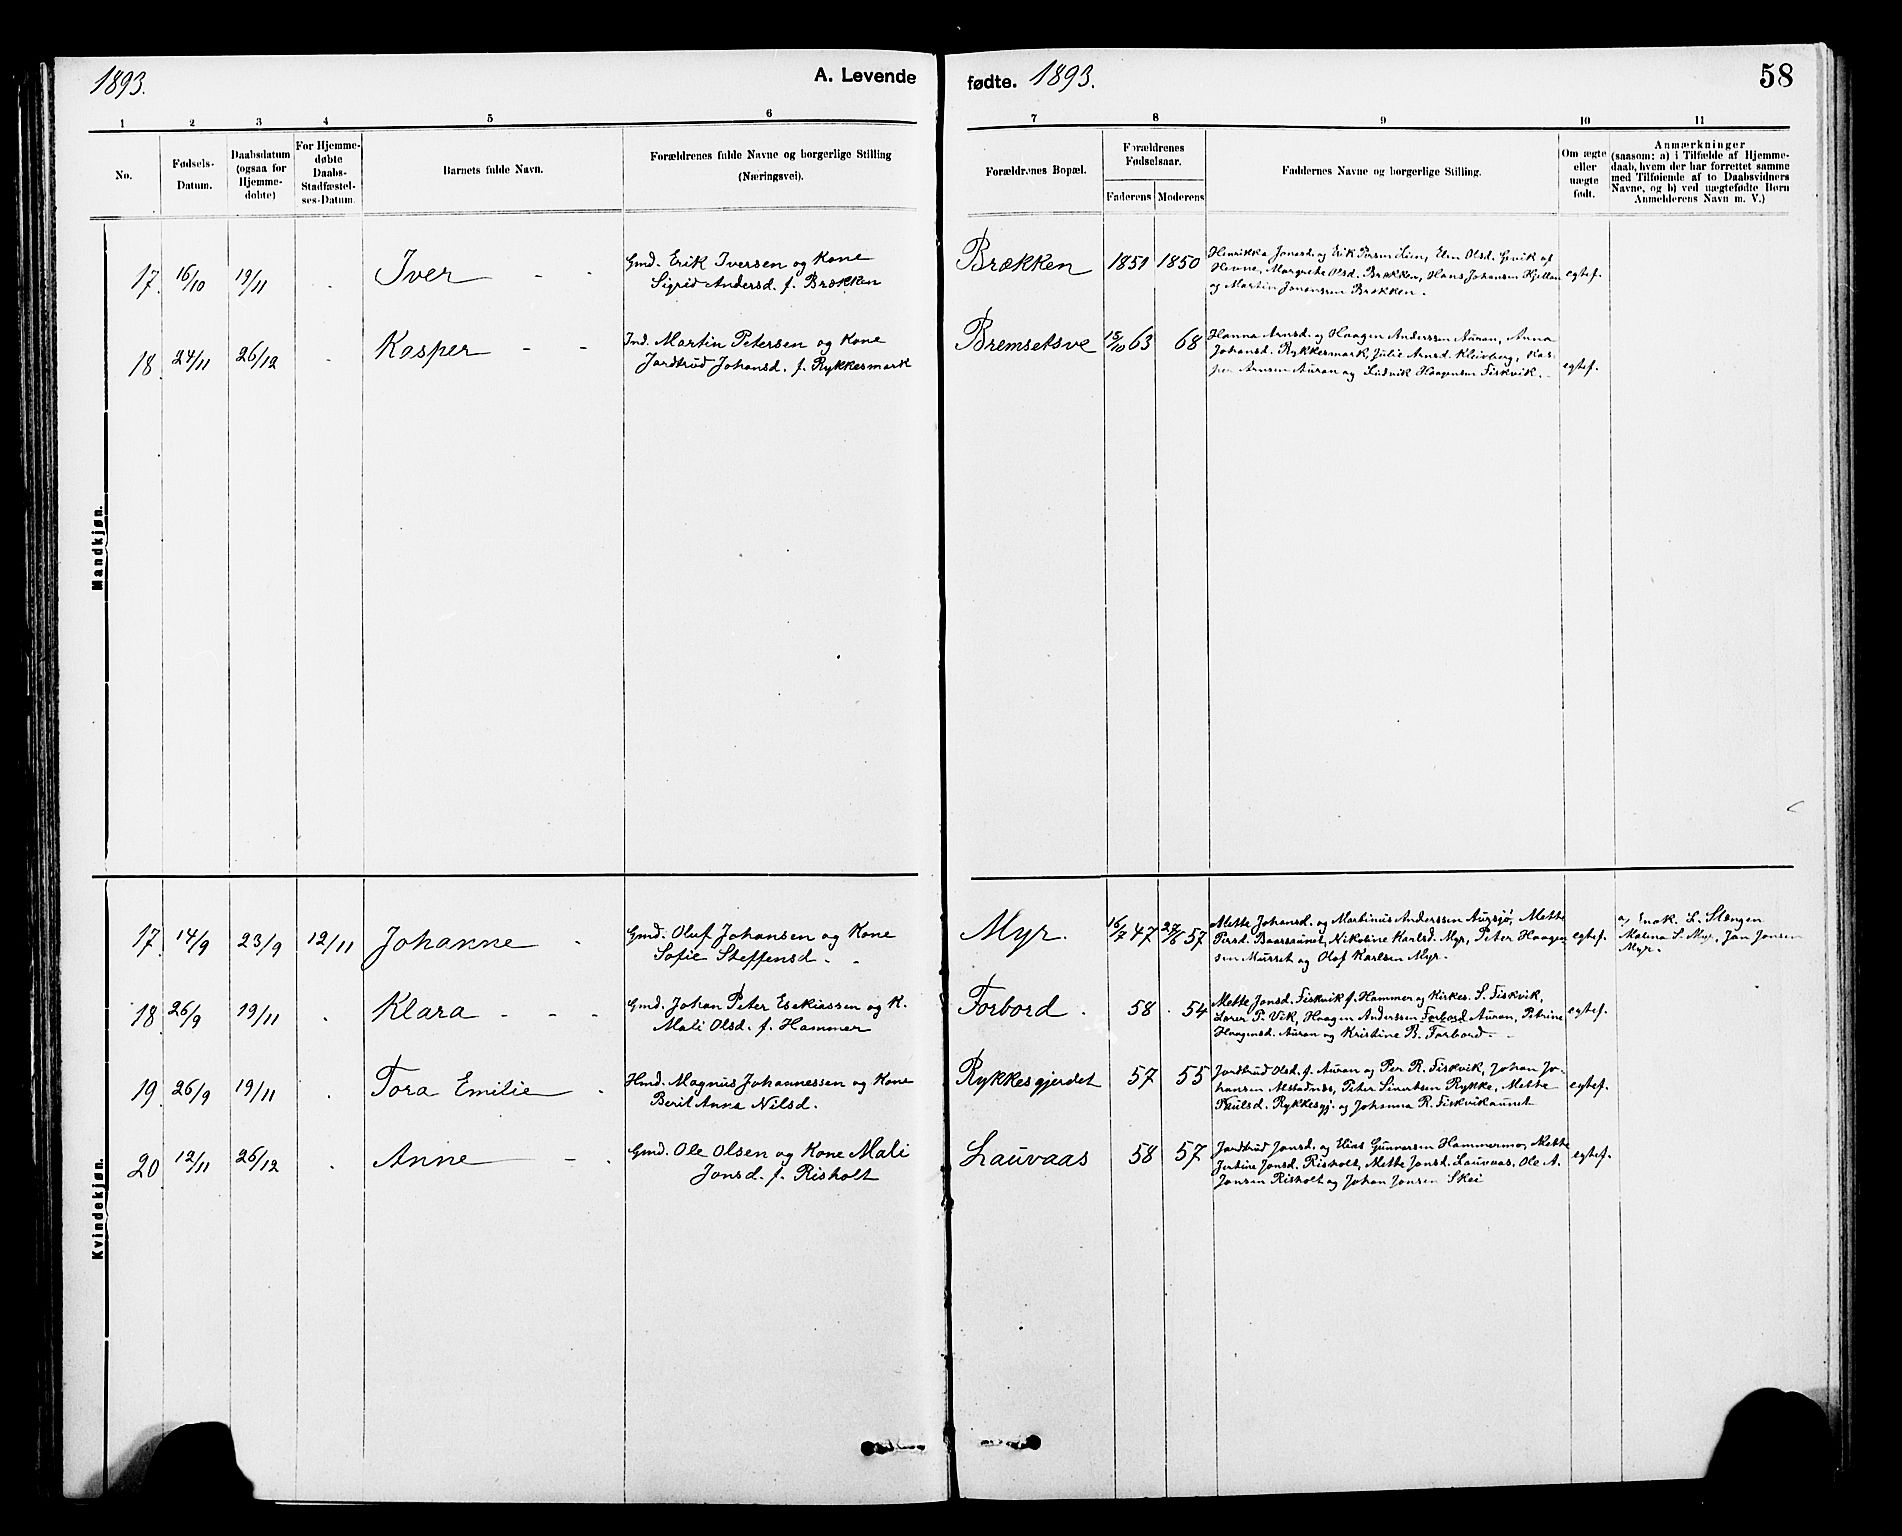 1893.
A. Levende
fødte. 1893.
58
1 2 3 4 5 6 7 8 9 10 11
No.
Fødsels-
Datum.
Daabsdatum
(ogsaa for
Hjemme-
døbte)
For Hjemme-
døbte
Daabs-
Stadfæstel-
ses-Datum.
Barnets fulde Navn.
Forældrenes fulde Navne og borgerlige Stilling
(Næringsvei).
Forældrenes Bopæl.
Forældrenes
Fødselsaar.
Faderens Moderens
Faddernes Navne og borgerlige Stilling.
Om ægte
eller
uægte
født.
Anmærkninger
(saasom: a) i Tilfælde af Hjemme-
daab, hvem der har forrettet samme
med Tilføiende af to Daabsvidners
Navne, og b) ved uægtefødte Børn
Anmelderens Navn m. V.)
Mandkjøn.
17. 16/10 19/11 Iver
Gmd. Erik Iversen og Kone
Sigrid Andersd. f. Brækken
Brækken 1851 1850
Henrikke Jonasd. og Erik Lien, Elen Olsd. Gjevik af
Hevne, Margrethe Olsd. Brækken, Hans Johansen Hjellan
og Martin Jonassen Brækken.
egtef.
18. 24/11 26/12 Kasper
Ind. Martin Petersen og Kone
Jardtrud Johansd. f. Rykkesmark
Bremsetsve 15/10 63 68
Hanna Arnsd. og Haagen Anderssen Auran, Anna
Johansd. Rykkesmark, Julie Arnsd. Kleivberg, Kas-
per Arnsen Auran og Ludvik Haagensen Fiskvik.
egtef.
Kvindekjøn.
17. 14/9 23/9 12/11 Johanne
Gmd. Oluf Johansen og Kone
Sofie Steffensd.
Myr. 16/7 47 27/6 57
Mette Johansd. og Martinus Anderssen Augsjø, Mette
Persd. Baarsaunet, Nikoline Karlsd. Myr, Peter Haagen-
sen Murset og Olof Karlsen Myr.
egtef.
a, Enok. L. Stængen
Malena S. Myr, Jan Jonsen
Myr.
18 26/9 19/11 Klara
Gmd. Johan Peter Esekiassen og K.
Mali Olsd. f. Hammer
Forbord. 58 54
Mette Jonsd. Fiskvik f. Hammer og Kirkes. S. Fiskvik,
Lærer P. Vik, Haagen Anderssen Forbord Auran, Petrine
Haagensd. Auran og Kristine B. Forbord.
egtef.
19. 26/9 19/11 Tora Emilie
Hmd. Magnus Johannessen og Kone
Berit Anna Nilsd.
Rykkesgjerdet 57 55
Jardtrud Olsd. f. Auran og Per R. Fiskvik, Johan Jo-
hansen Alstadnæs, Peter Sivertsen Rykke, Mette
Paulsd. Rykkesgj. og Johanna R. Fiskvikaunet
egtef.
20 12/11 26/12 Anne
Gmd. Ole Olsen og Kone Mali
Jonsd. f. Risholt
Lauvaas 58 57
Jardtrud Jonsd. og Elias Gunnarsen Hammermo, Mette
Justine Jonsd. Risholt, Mette Jonsd. Lauvaas, Ole A.
Jonsen Risholt og Johan Jonsen Skei
egtef.